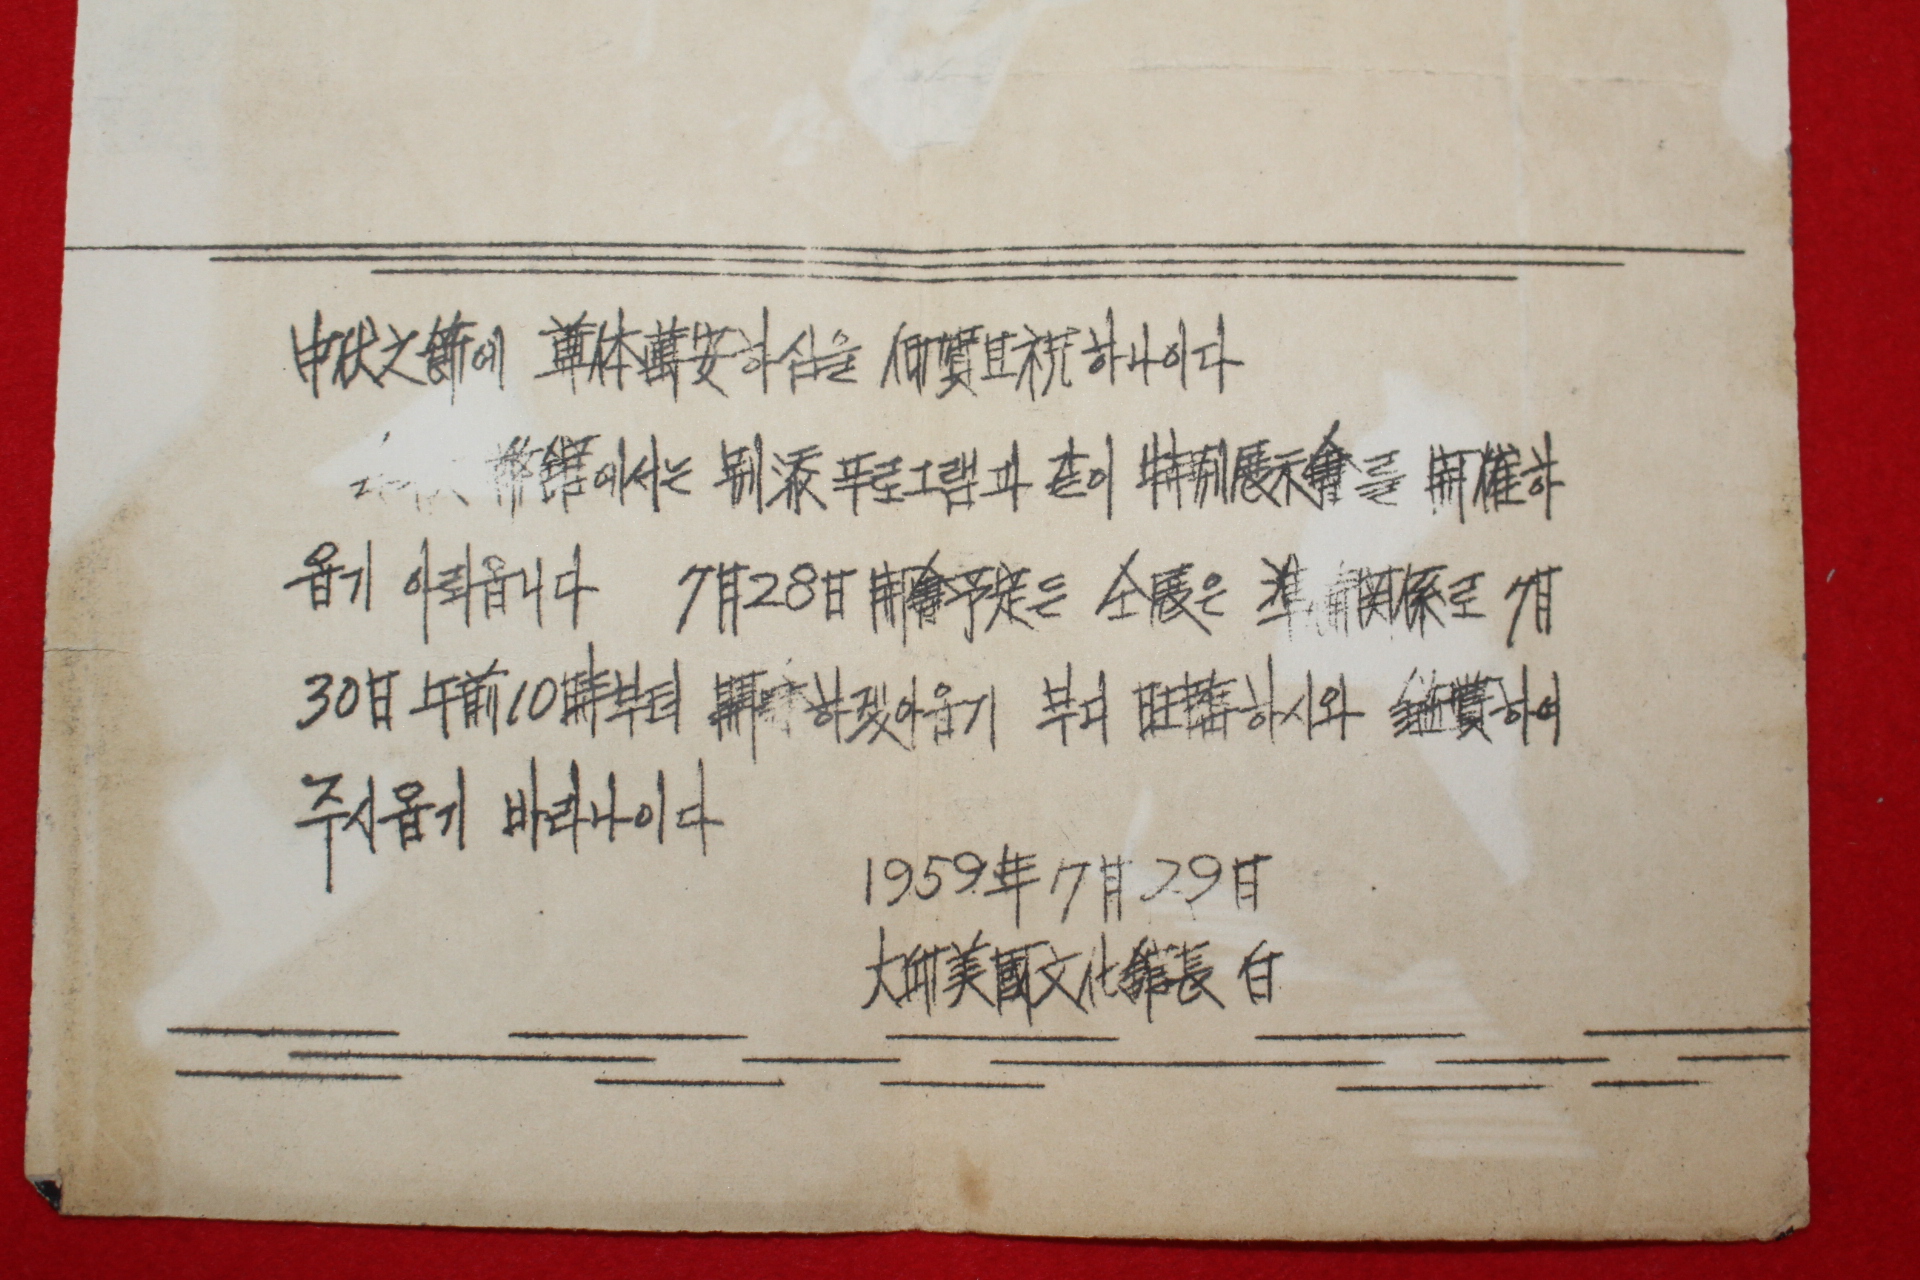 中伏之節에 尊体萬安하심을 仰賀且祝하나이다
館에서는 別添 푸로그람과 같이 特別展示會를 開催하
옵기 아뢰옵니다 7月28日 開會予定든 仝展은 準備関係로 7月
30日 午前10時부터 開하겠아옵기 부디 旺臨하시와 鑑賞하여
주시옵기 바라나이다
1959年 7月 29日
大邱美國文化館長 白